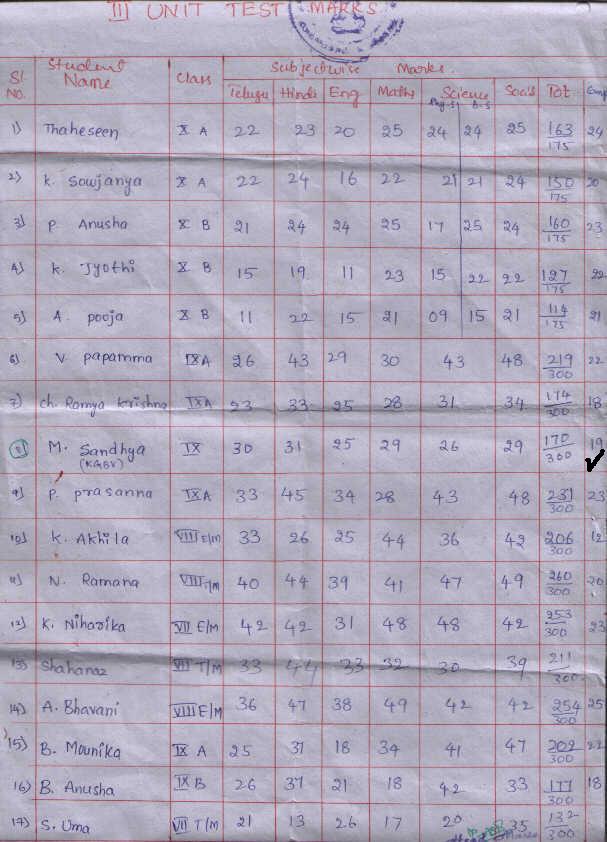 III UNIT TEST MARKS
Sl. No. Student Name Class Subjectwise Marks.
Telugu Hindi Eng Maths Science Soc's Tot Comp
Phy-S B-S
1) Thaheseen X A 22 23 20 25 24 24 25 163/175 24
2) K. Sowjanya X A 22 24 16 22 21 21 24 150/175 20
3) P. Anusha X B 21 24 24 25 17 25 24 160/175 23
4) K. Jyothi X B 15 19 11 23 15 22 22 127/175 22
5) A. pooja X B 11 22 15 21 09 15 21 114/175 21
6) V papamma IX A 26 43 29 30 43 48 219/300 22
7) Ch. Ramya Krishna IX A 23 33 25 28 31 34 174/300 18
8) M. Sandhya (KGBV) IX 30 31 25 29 26 29 170/300 19
9) P. prasanna IX A 33 45 34 28 43 48 231/300 23
10) K. Akhila VIII E/M 33 26 25 44 36 42 206/300 12
11) N. Ramana VIII T/M 40 44 39 41 47 49 260/300 20
12) K. Niharika VII E/M 42 42 31 48 48 42 253/300 23
13) Shahanaz VII T/M 33 44 33 32 30 39 211/300
14) A. Bhavani VIII E/M 36 47 38 49 42 42 254/300 25
15) B. Mounika IX A 25 37 18 34 41 47 202/300 22
16) B. Anusha IX B 26 37 21 18 42 33 177/300 18
17) S. Uma VII T/M 21 13 26 17 20 35 132/300